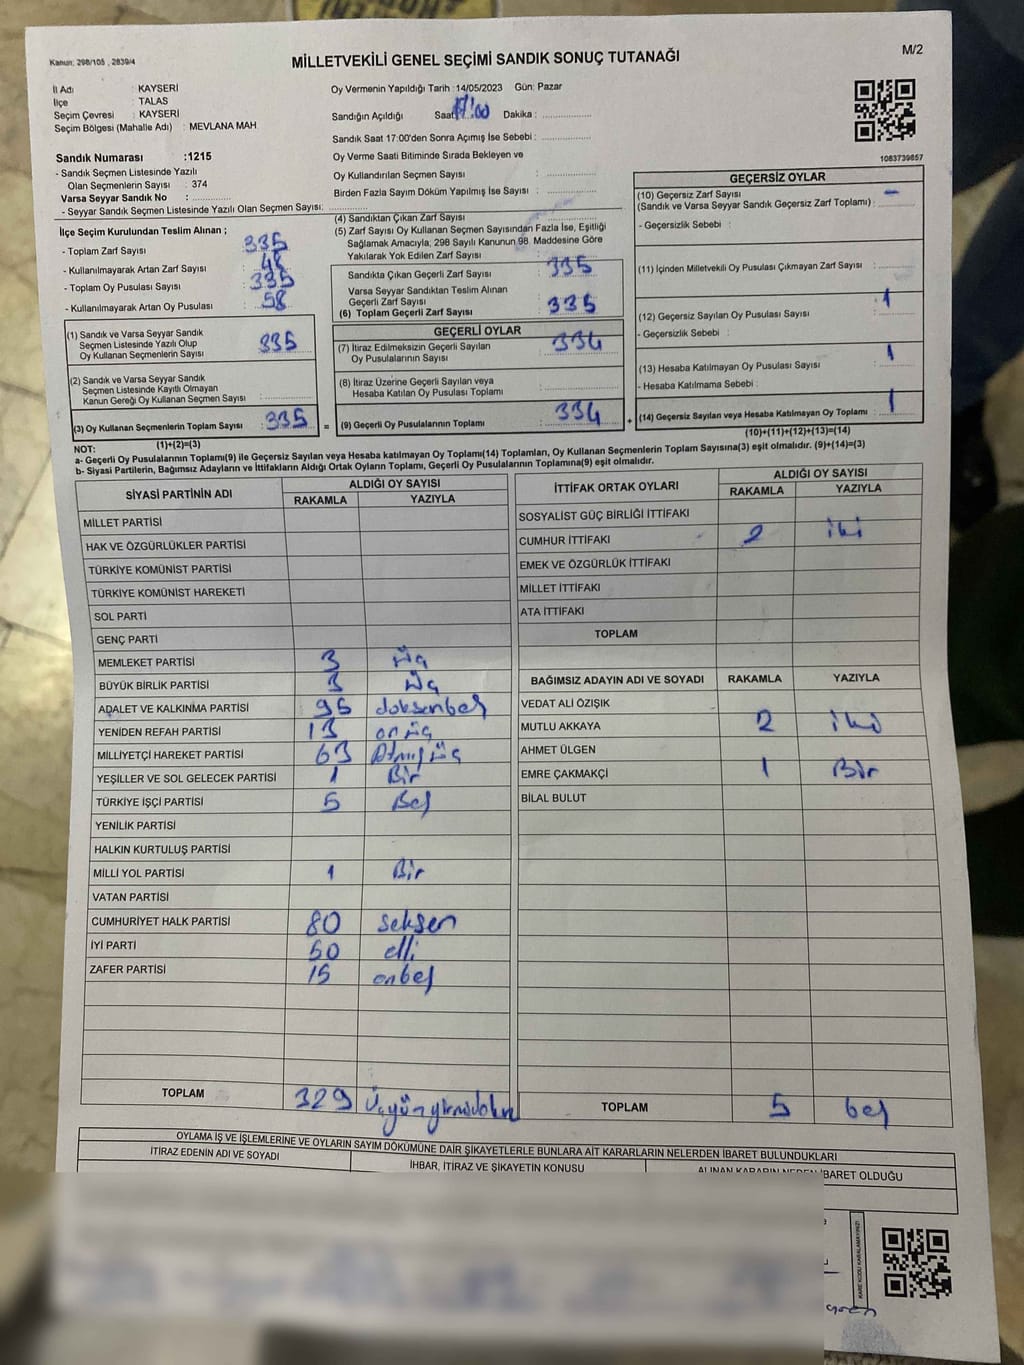 Kanun: 298/105 , 2839/4
MİLLETVEKİLİ GENEL SEÇİMİ SANDIK SONUÇ TUTANAĞI
M/2
İl Adı : KAYSERİ
İlçe : TALAS
Seçim Çevresi : KAYSERİ
Seçim Bölgesi (Mahalle Adı) : MEVLANA MAH
Sandık Numarası :1215
- Sandık Seçmen Listesinde Yazılı
Olan Seçmenlerin Sayısı : 374
Varsa Seyyar Sandık No :
- Seyyar Sandık Seçmen Listesinde Yazılı Olan Seçmen Sayısı:
Oy Vermenin Yapıldığı Tarih :14/05/2023 Gün: Pazar
Sandığın Açıldığı Saat 17:00 Dakika :
Sandık Saat 17:00'den Sonra Açımış İse Sebebi :
Oy Verme Saati Bitiminde Sırada Bekleyen ve
Oy Kullandırılan Seçmen Sayısı :
Birden Fazla Sayım Döküm Yapılmış İse Sayısı :
1083739857
İlçe Seçim Kurulundan Teslim Alınan ;
- Toplam Zarf Sayısı : 335
- Kullanılmayarak Artan Zarf Sayısı : 48
- Toplam Oy Pusulası Sayısı : 335
- Kullanılmayarak Artan Oy Pusulası : 58
(1) Sandık ve Varsa Seyyar Sandık
Seçmen Listesinde Yazılı Olup
Oy Kullanan Seçmenlerin Sayısı : 335
(2) Sandık ve Varsa Seyyar Sandık
Seçmen Listesinde Kayıtlı Olmayan
Kanun Gereği Oy Kullanan Seçmen Sayısı :
(3) Oy Kullanan Seçmenlerin Toplam Sayısı : 335
(1)+(2)=(3)
(4) Sandıktan Çıkan Zarf Sayısı :
(5) Zarf Sayısı Oy Kullanan Seçmen Sayısından Fazla İse, Eşitliği
Sağlamak Amacıyla; 298 Sayılı Kanunun 98. Maddesine Göre
Yakılarak Yok Edilen Zarf Sayısı :
Sandıkta Çıkan Geçerli Zarf Sayısı : 335
Varsa Seyyar Sandıktan Teslim Alınan
Geçerli Zarf Sayısı :
(6) Toplam Geçerli Zarf Sayısı : 335
GEÇERLİ OYLAR
(7) İtiraz Edilmeksizin Geçerli Sayılan
Oy Pusulalarının Sayısı : 334
(8) İtiraz Üzerine Geçerli Sayılan veya
Hesaba Katılan Oy Pusulası Toplamı :
= (9) Geçerli Oy Pusulalarının Toplamı : 334 +
GEÇERSİZ OYLAR
(10) Geçersiz Zarf Sayısı
(Sandık ve Varsa Seyyar Sandık Geçersiz Zarf Toplamı) : -
- Geçersizlik Sebebi :
(11) İçinden Milletvekili Oy Pusulası Çıkmayan Zarf Sayısı :
(12) Geçersiz Sayılan Oy Pusulası Sayısı : 1
- Geçersizlik Sebebi :
(13) Hesaba Katılmayan Oy Pusulası Sayısı : 1
- Hesaba Katılmama Sebebi :
(14) Geçersiz Sayılan veya Hesaba Katılmayan Oy Toplamı : 1
(10)+(11)+(12)+(13)=(14)
NOT:
a- Geçerli Oy Pusulalarının Toplamı(9) ile Geçersiz Sayılan veya Hesaba katılmayan Oy Toplamı(14) Toplamları, Oy Kullanan Seçmenlerin Toplam Sayısına(3) eşit olmalıdır. (9)+(14)=(3)
b- Siyasi Partilerin, Bağımsız Adayların ve İttifakların Aldığı Ortak Oyların Toplamı, Geçerli Oy Pusulalarının Toplamına(9) eşit olmalıdır.
SİYASİ PARTİNİN ADI ALDIĞI OY SAYISI
RAKAMLA YAZIYLA
MİLLET PARTİSİ
HAK VE ÖZGÜRLÜKLER PARTİSİ
TÜRKİYE KOMÜNİST PARTİSİ
TÜRKİYE KOMÜNİST HAREKETİ
SOL PARTİ
GENÇ PARTİ
MEMLEKET PARTİSİ 3 üç
BÜYÜK BİRLİK PARTİSİ 3 üç
ADALET VE KALKINMA PARTİSİ 95 doksenbeş
YENİDEN REFAH PARTİSİ 13 onüç
MİLLİYETÇİ HAREKET PARTİSİ 63 Atmışüç
YEŞİLLER VE SOL GELECEK PARTİSİ 1 Bir
TÜRKİYE İŞÇİ PARTİSİ 5 Beş
YENİLİK PARTİSİ
HALKIN KURTULUŞ PARTİSİ
MİLLİ YOL PARTİSİ 1 Bir
VATAN PARTİSİ
CUMHURİYET HALK PARTİSİ 80 seksen
İYİ PARTİ 50 elli
ZAFER PARTİSİ 15 onbeş
TOPLAM 329
İTTİFAK ORTAK OYLARI ALDIĞI OY SAYISI
RAKAMLA YAZIYLA
SOSYALİST GÜÇ BİRLİĞİ İTTİFAKI
CUMHUR İTTİFAKI 2 iki
EMEK VE ÖZGÜRLÜK İTTİFAKI
MİLLET İTTİFAKI
ATA İTTİFAKI
TOPLAM
BAĞIMSIZ ADAYIN ADI VE SOYADI RAKAMLA YAZIYLA
VEDAT ALİ ÖZIŞIK
MUTLU AKKAYA 2 iki
AHMET ÜLGEN
EMRE ÇAKMAKÇİ 1 Bir
BİLAL BULUT
TOPLAM 5 beş
OYLAMA İŞ VE İŞLEMLERİNE VE OYLARIN SAYIM DÖKÜMÜNE DAİR ŞİKAYETLERLE BUNLARA AİT KARARLARIN NELERDEN İBARET BULUNDUKLARI
İTİRAZ EDENİN ADI VE SOYADI İHBAR, İTİRAZ VE ŞİKAYETİN KONUSU ALINAN KARARIN NEDEN İBARET OLDUĞU
KARE KODU KARALAMAYINIZ!